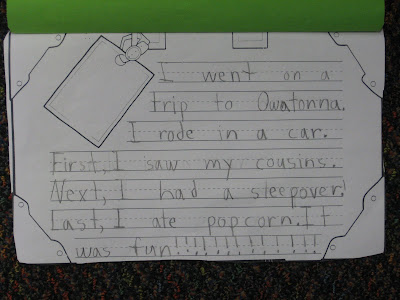 I went on a
trip to Owatonna.
I rode in a car.
First, I saw my cousins.
Next, I had a sleepover!
Last, I ate popcorn. It
was fun!!!!!!!!!!!!